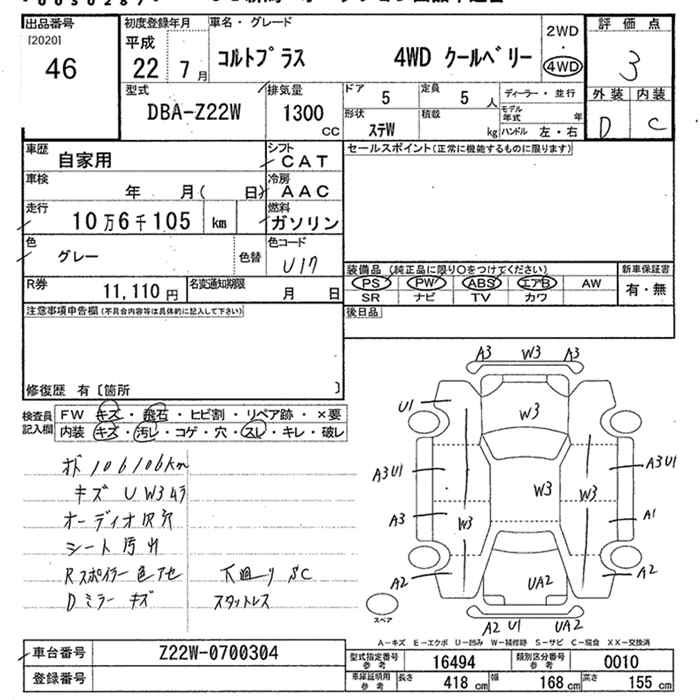 出品番号
[2020]
46
初度登録年月
平成
22年7月
車名・グレード
コルトプラス 4WD クールベリー
2WD
・
4WD
評価点
3
外装 内装
D C
型式
DBA-Z22W
排気量
1300
CC
ドア 5
定員 5人
ディーラー・並行
形状 ステW
積載 kg
モデル年式 年
ハンドル 左・右
車歴
自家用
シフト
CAT
セールスポイント(正常に機能するものに限ります)
車検
年 月( 日)
冷房
AAC
走行
10万6千105 km
燃料
ガソリン
色
グレー
色替
色コード
U17
装備品(純正品に限り○をつけてください)
新車保証書
PS PW ABS エアB AW
有・無
SR ナビ TV カワ
R券
11,110円
名変通知期限
月 日
後日品
注意事項申告欄(不具合内容等は具体的に記入して下さい)
修復歴 有〔箇所 〕
検査員記入欄
FW キズ・飛石・ヒビ割・リペア跡・×要
内装 キズ・汚レ・コゲ・穴・スレ・キレ・破レ
106106km
キズ U W3
オーディオ
シート汚れ
Rスポイラー色アセ
下廻り SC
Dミラー キズ
スタットレス
A3 W3 A3
U1
W3
A3U1 W3 W3 A3U1
A3 W3 A1
A2 UA2 A2
スペア
A2 U1 UA2
A-キズ E-エクボ U-凹み W-補修跡 S-サビ C-腐食 XX-交換済
車台番号
Z22W-0700304
型式指定番号
参考
16494
類別区分番号
参考
0010
登録番号
車庫証明用
参考
長さ 418 cm
幅 168 cm
高さ 155 cm